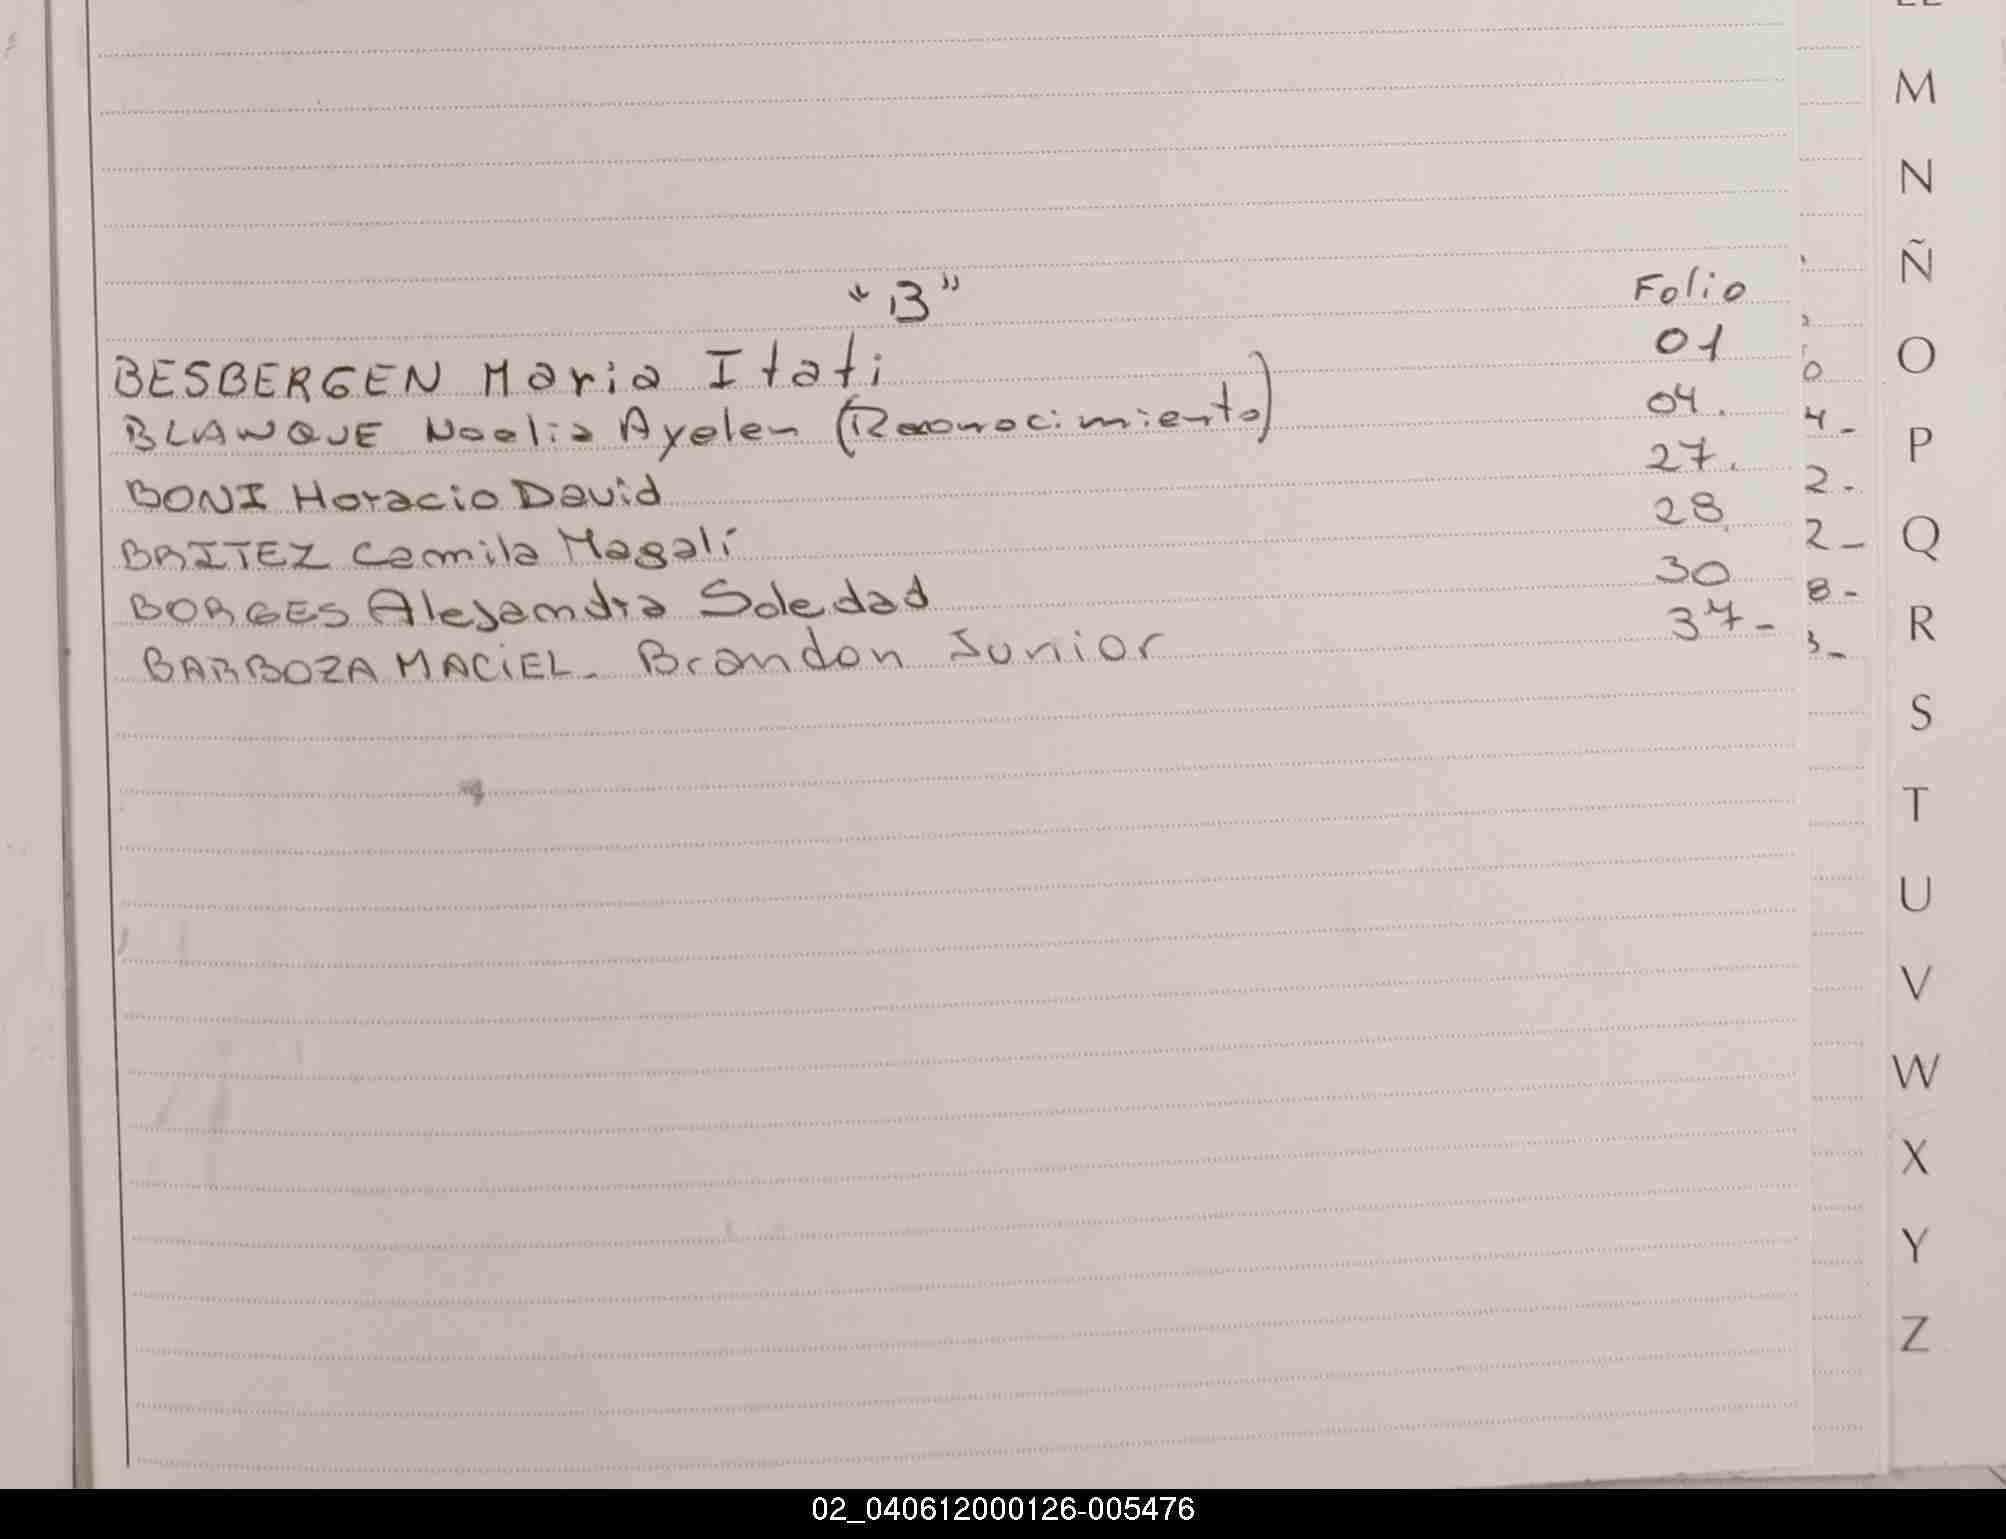 LL
M
N
Ñ
O
P
Q
R
S
T
U
V
W
X
Y
Z
"B" Folio
BESBERGEN Maria Itati 01
BLANQUE Noelia Ayelen (Reconocimiento) 04.
BONI Horacio David 27.
BRITEZ Camila Magalí 28.
BORGES Alejandra Soledad 30
BARBOZA MACIEL- Brandon Junior 37-
0
4-
2-
2-
8-
3-
02_040612000126-005476